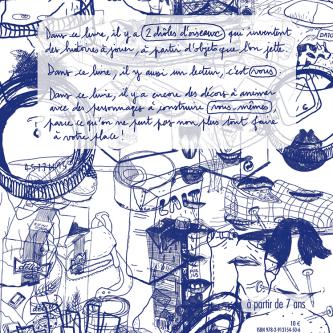 Dans ce livre, il y a 2 drôles d'oiseaux qui inventent
des histoires à jouer, à partir d'objets que l'on jette.
Dans ce livre, il y aussi un lecteur, c'est vous.
Dans ce livre, il y a encore des décors à animer
avec des personnages à construire vous-mêmes,
parce qu'on ne peut pas non plus tout faire
à votre place !
à partir de 7 ans
10 €